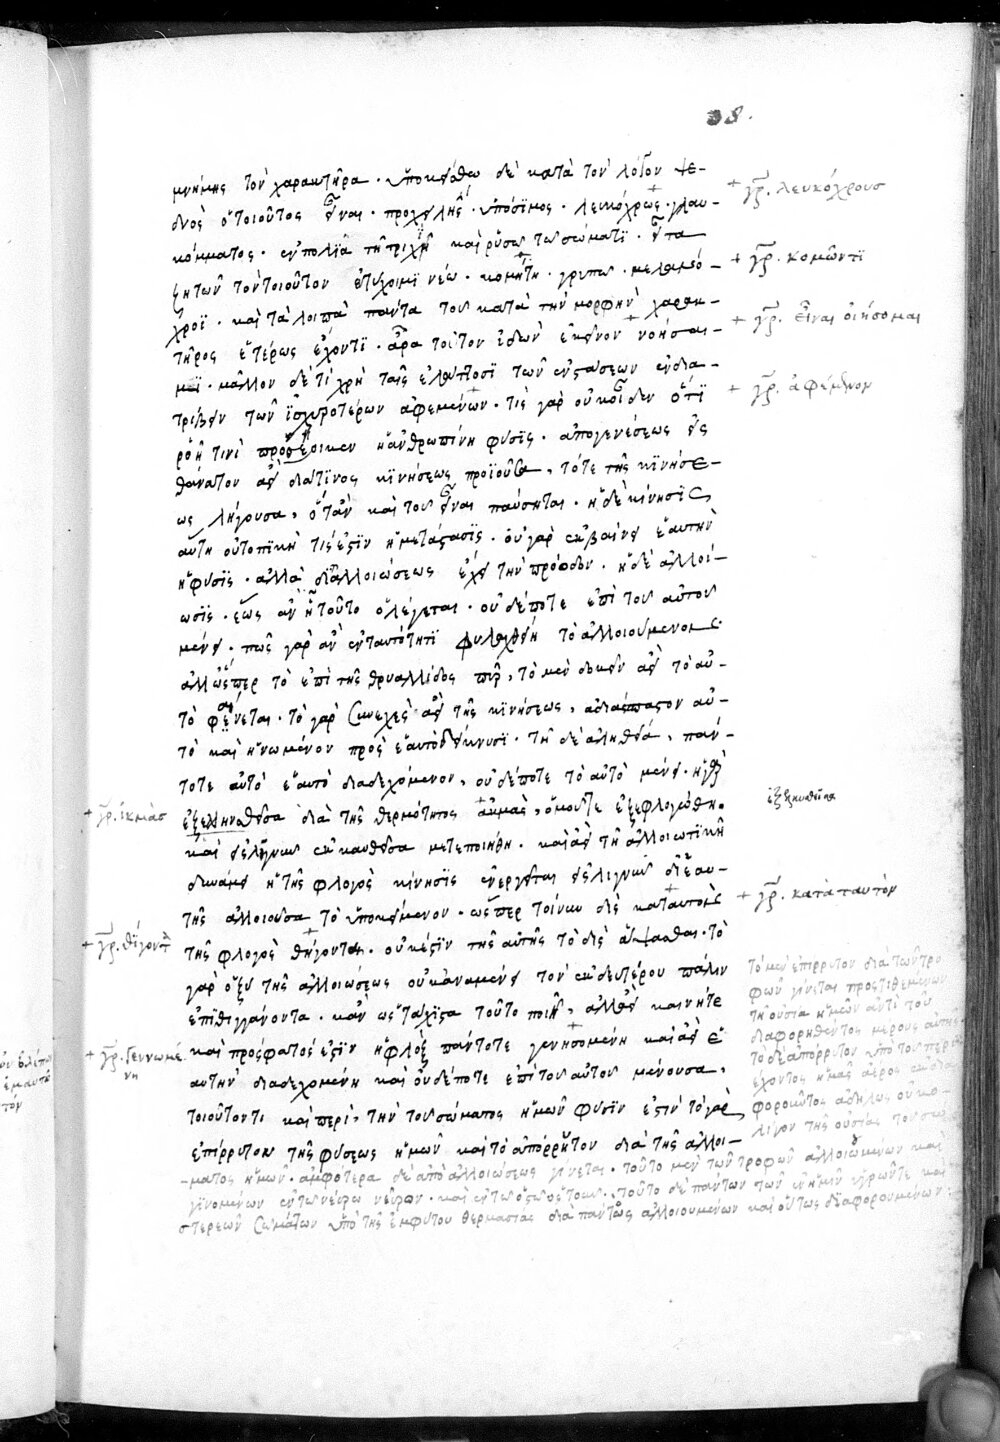 38.
μνήμης τὸν χαρακτῆρα · ὑποκείσθω δὲ κατὰ τὸν λόγον ψε-
δνὸς ὁ τοιοῦτος εἶναι · προχειλὴς · ὑπόσιμος · λευκόχρως · γλαυ-
κόμματος · ἐν πολιᾷ τῇ τριχὶ καὶ ῥυσῷ τῷ σώματι · εἶτα
ζητῶν τὸν τοιοῦτον ἐτύχοιμι νέω · κομήτῃ · γρυπῷ · μελανό-
χροϊ · καὶ τὰ λοιπὰ πάντα τοῦ κατὰ τὴν μορφὴν χαρακ-
τῆρος ἑτέρως ἔχοντι · ἆρα τοῦτον ἰδὼν ἐκεῖνον νοήσαι-
μι · μᾶλλον δὲ τί χρὴ ταῖς ἐλάττοσι τῶν ἐνστάσεων ἐνδια-
τρίβειν τῶν ἰσχυροτέρων ἀφεμένων · τίς γὰρ οὐκ οἶδεν ὅτι
ῥοῇ τινὶ προσέοικεν ἡ ἀνθρωπίνη φύσις · ἀπὸ γενέσεως εἰς
θάνατον ἀεὶ διά τινος κινήσεως προϊοῦσα, τότε τῆς κινήσε-
ως λήγουσα, ὅταν καὶ τοῦ εἶναι παύσηται · ἡ δὲ κίνησις
αὕτη οὐ τοπική τίς ἐστιν ἡ μετάστασις · οὐ γὰρ ἐκβαίνει ἑαυτὴν
ἡ φύσις · ἀλλὰ δι' ἀλλοιώσεως ἔχει τὴν πρόοδον · ἡ δὲ ἀλλοί-
ωσις · ἕως ἂν ᾖ τοῦτο ὃ λέγεται · οὐδέποτε ἐπὶ τοῦ αὐτοῦ
μένει · πῶς γὰρ ἂν ἐν ταυτότητι φυλαχθείη τὸ ἀλλοιούμενον ·
ἀλλ' ὥσπερ τὸ ἐπὶ τῆς θρυαλλίδος πῦρ, τὸ μὲν δοκεῖν ἀεὶ τὸ αὐ-
τὸ φαίνεται · τὸ γὰρ συνεχὲς ἀεὶ τῆς κινήσεως, ἀδιάσπαστον αὐ-
τὸ καὶ ἡνωμένον πρὸς ἑαυτὸ δείκνυσι · τῇ δὲ ἀληθείᾳ, πάν-
τοτε αὐτὸ ἑαυτὸ διαδεχόμενον, οὐδέποτε τὸ αὐτὸ μένει · ἡ γὰρ
ἐξελκυσθεῖσα διὰ τῆς θερμότητος ἀκμὰς, ὁμοῦ τε ἐξεφλογώθη ·
καὶ εἰς λιγνὺν ἐκκαυθεῖσα μετεποιήθη · καὶ ἀεὶ τῇ ἀλλοιωτικῇ
δυνάμει ἡ τῆς φλογὸς κίνησις ἐνεργεῖται εἰς λιγνὺν δι' ἑαυ-
τῆς ἀλλοιοῦσα τὸ ὑποκείμενον · ὥσπερ τοίνυν δὶς κατ' αὐτὸ
τῆς φλογὸς θήγοντα · οὐκ ἔστιν τῆς αὐτῆς τὸ δὶς ἅψασθαι · τὸ
γὰρ ὀξὺ τῆς ἀλλοιώσεως οὐκ ἀναμένει τὸν ἐκ δευτέρου πάλιν
ἐπιθιγγάνοντα · κἂν ὡς τάχιστα τοῦτο ποιῇ, ἀλλ' ἀεὶ καινή τε
καὶ πρόσφατός ἐστιν ἡ φλὸξ πάντοτε γεννησομένη καὶ ἀεὶ ἑ
αυτὴν διαδεχομένη καὶ οὐδέποτε ἐπὶ τοῦ αὐτοῦ μένουσα,
τοιοῦτόν τι καὶ περὶ τὴν τοῦ σώματος ἡμῶν φύσιν ἐστίν· τὸ γὰρ
ἐπίρρυτον τῆς φύσεως ἡμῶν καὶ τὸ ἀπόρρητον διὰ τῆς ἀλλοι-
-ματος ἡμῶν · ἀμφότερα δὲ ἀπὸ ἀλλοιώσεως γίνεται · τοῦτο μὲν τῶν τροφῶν ἀλλοιωμένων καὶ
γινομένων ἐν τῷ νεύρῳ νεύρων · καὶ ἐν τῷ ὀστῷ ὀστοῦν · τοῦτο δὲ πάντων τῶν ἐν ἡμῖν ὑγρῶν τε καὶ
στερεῶν σωμάτων ὑπὸ τῆς ἐμφύτου θερμασίας διὰ παντὸς ἀλλοιουμένων καὶ οὕτως διαφορουμένων
+ γρ. λευκόχρους
+ γρ. κομῶντι
+ γρ. εἶναι οἰήσομαι
+ γρ. ἀφέμενον
ἐξελκυσθεῖσα
+ γρ. ἰκμὰς
+ γρ. κατὰ ταυτὸν
+ γρ. θίγοντα
+ γρ. γεννωμέ
νη
τὸ μὲν ἐπίρρυτον διὰ τῶν τρο
φῶν γίνεται προστιθεμένων
τῇ οὐσίᾳ ἡμῶν ἀντὶ τοῦ
διαφορηθέντος μέρους αὐτῆς
τὸ δὲ ἀπόρρυτον ὑπὸ τοῦ περιέ
χοντος ἡμᾶς ἀέρος
φοροῦντος ἀδήλως οὐκ ὀ
λίγον τῆς οὐσίας τοῦ σώ